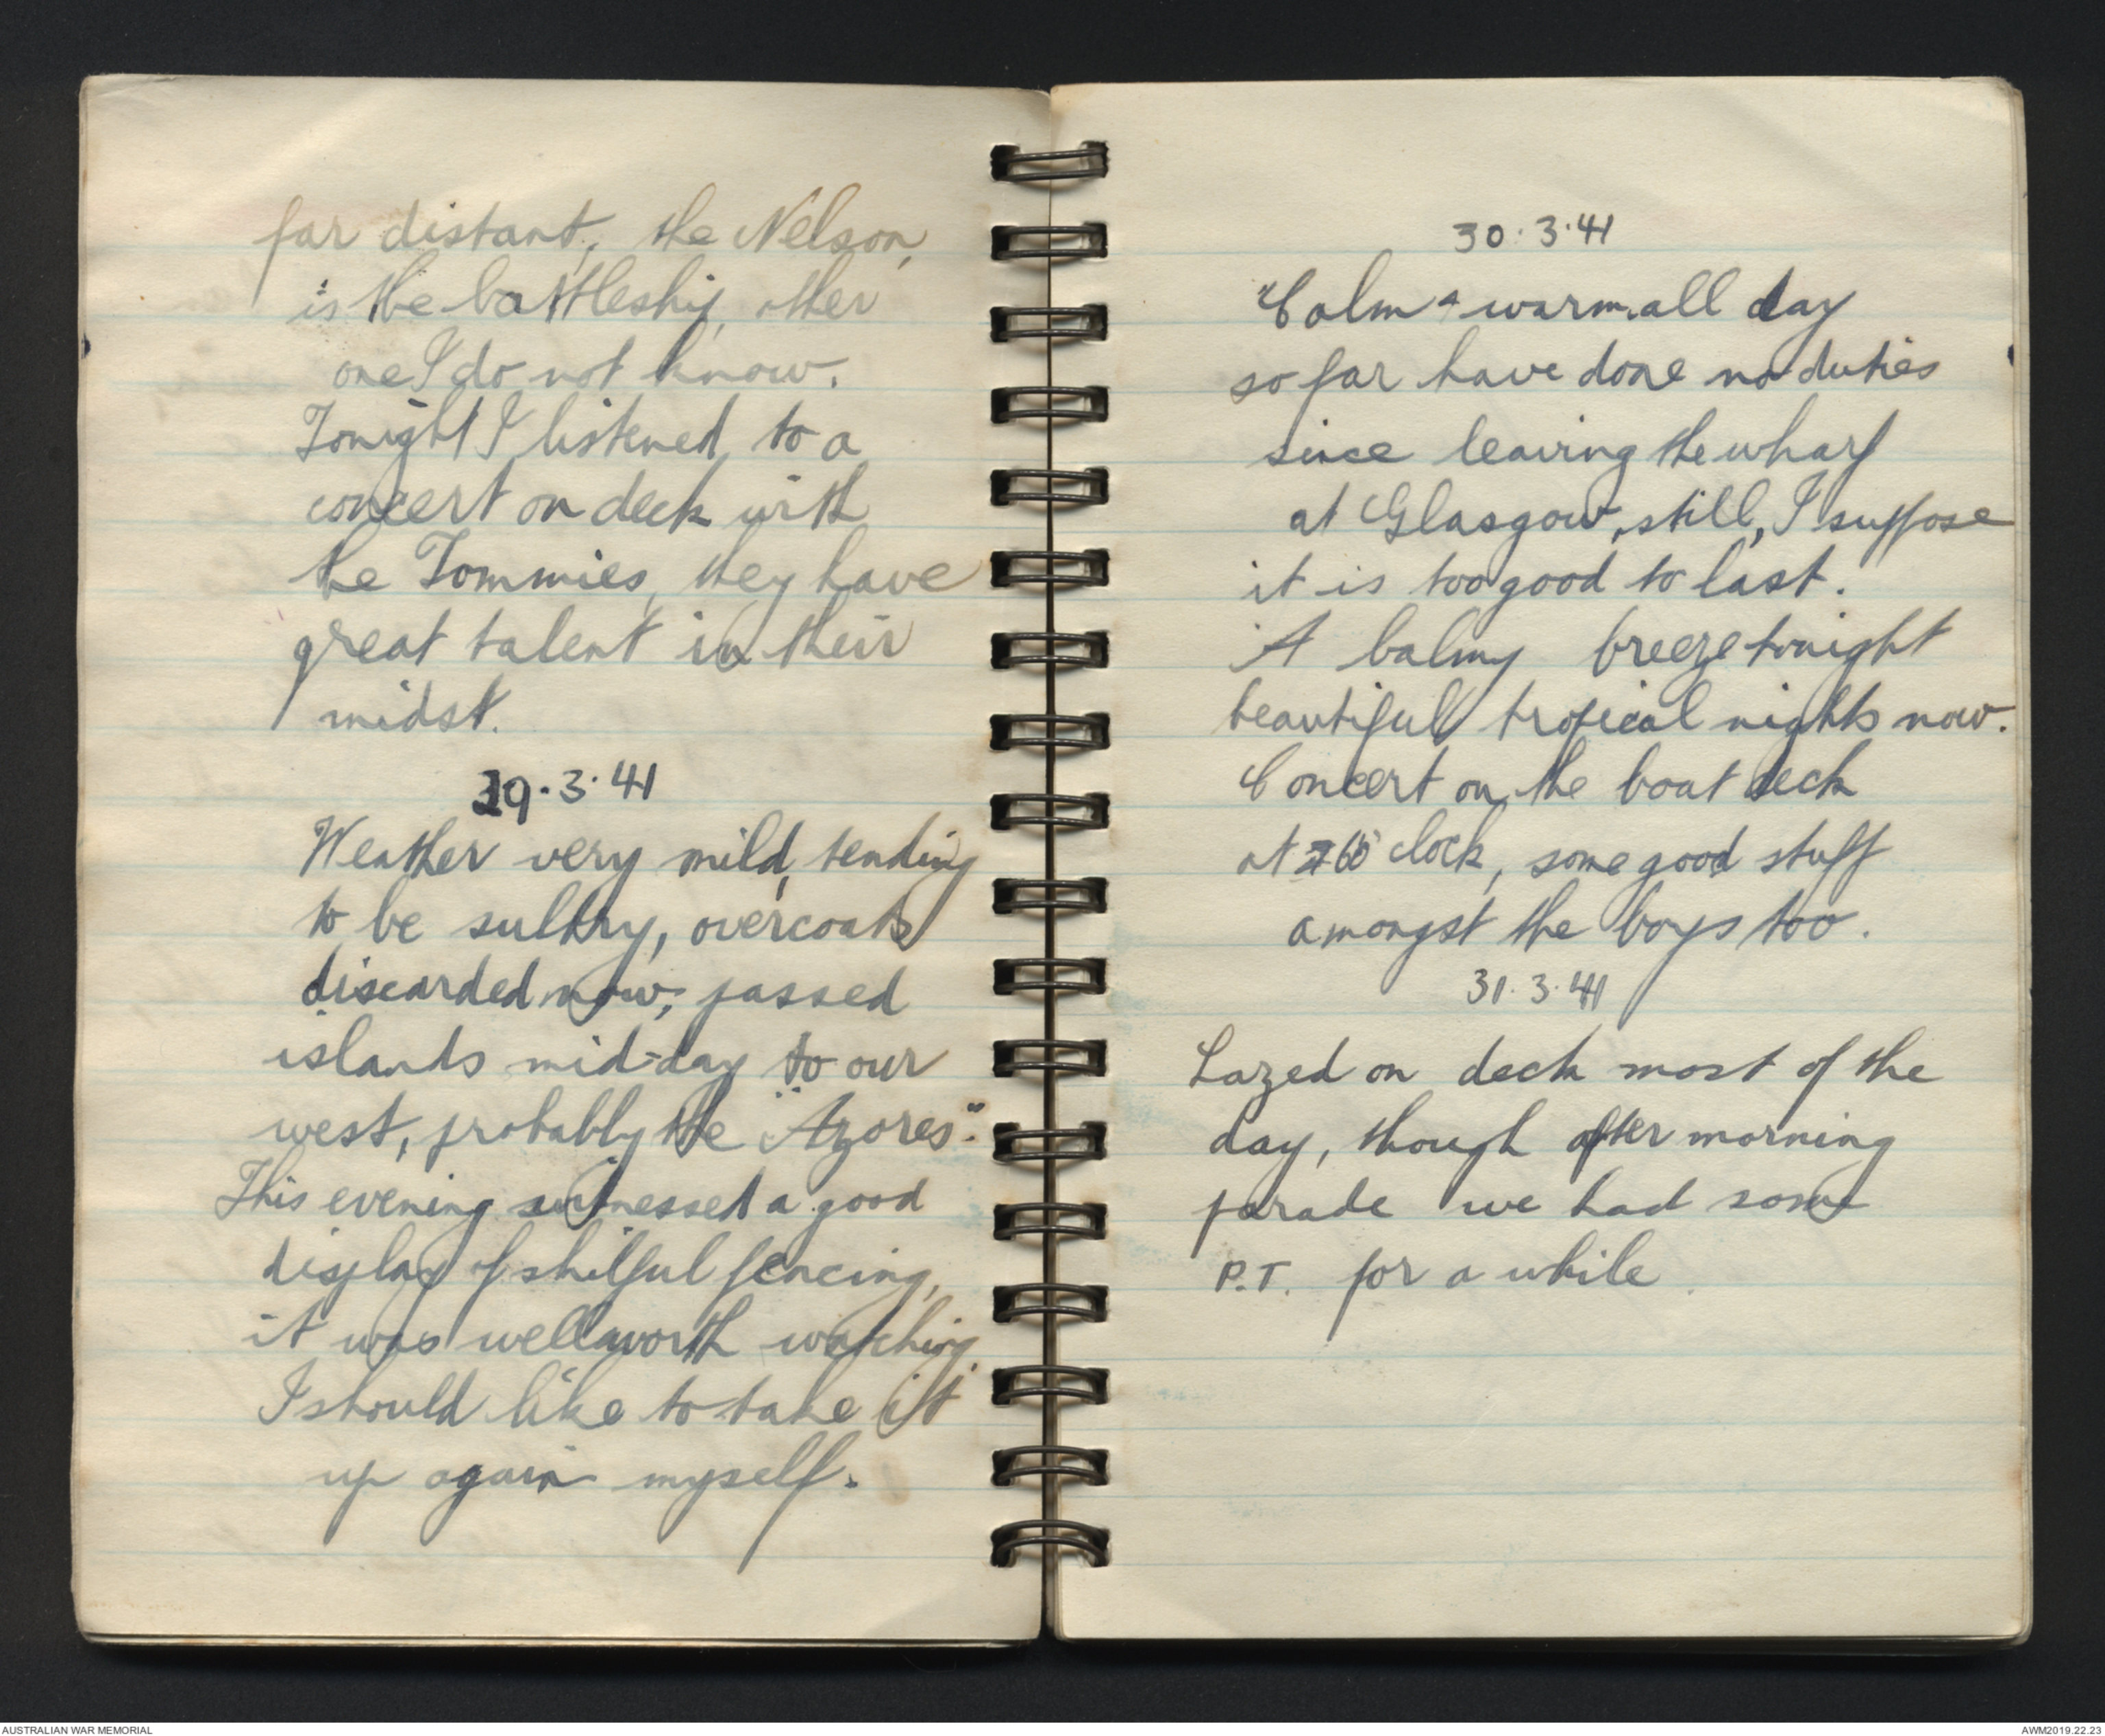 far distant, the Nelson,
is the battleship, other
one I do not know.
Tonight I listened to a
concert on deck with
the Tommies, they have
great talent in their
midst.
29.3.41
Weather very mild, tending
to be sultry, overcoats
discarded now, passed
islands mid-day to our
west, probably the "Azores".
This evening witnessed a good
display of skilful fencing,
it was well worth watching,
I should like to take it
up again myself.
30.3.41
Calm & warm all day
so far have done no duties
since leaving the wharf
at Glasgow, still, I suppose
it is too good to last.
A balmy breeze tonight
beautiful tropical nights now.
Concert on the boat deck
at 6 o'clock, some good stuff
amongst the boys too.
31.3.41
Lazed on deck most of the
day, though after morning
parade we had some
P.T. for a while
AUSTRALIAN WAR MEMORIAL
AWM2019.22.23